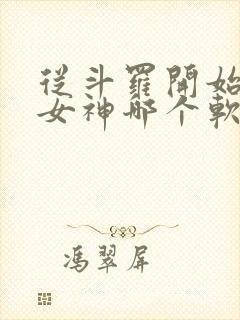 從斗羅開始
女神哪个軟
馮翠屏